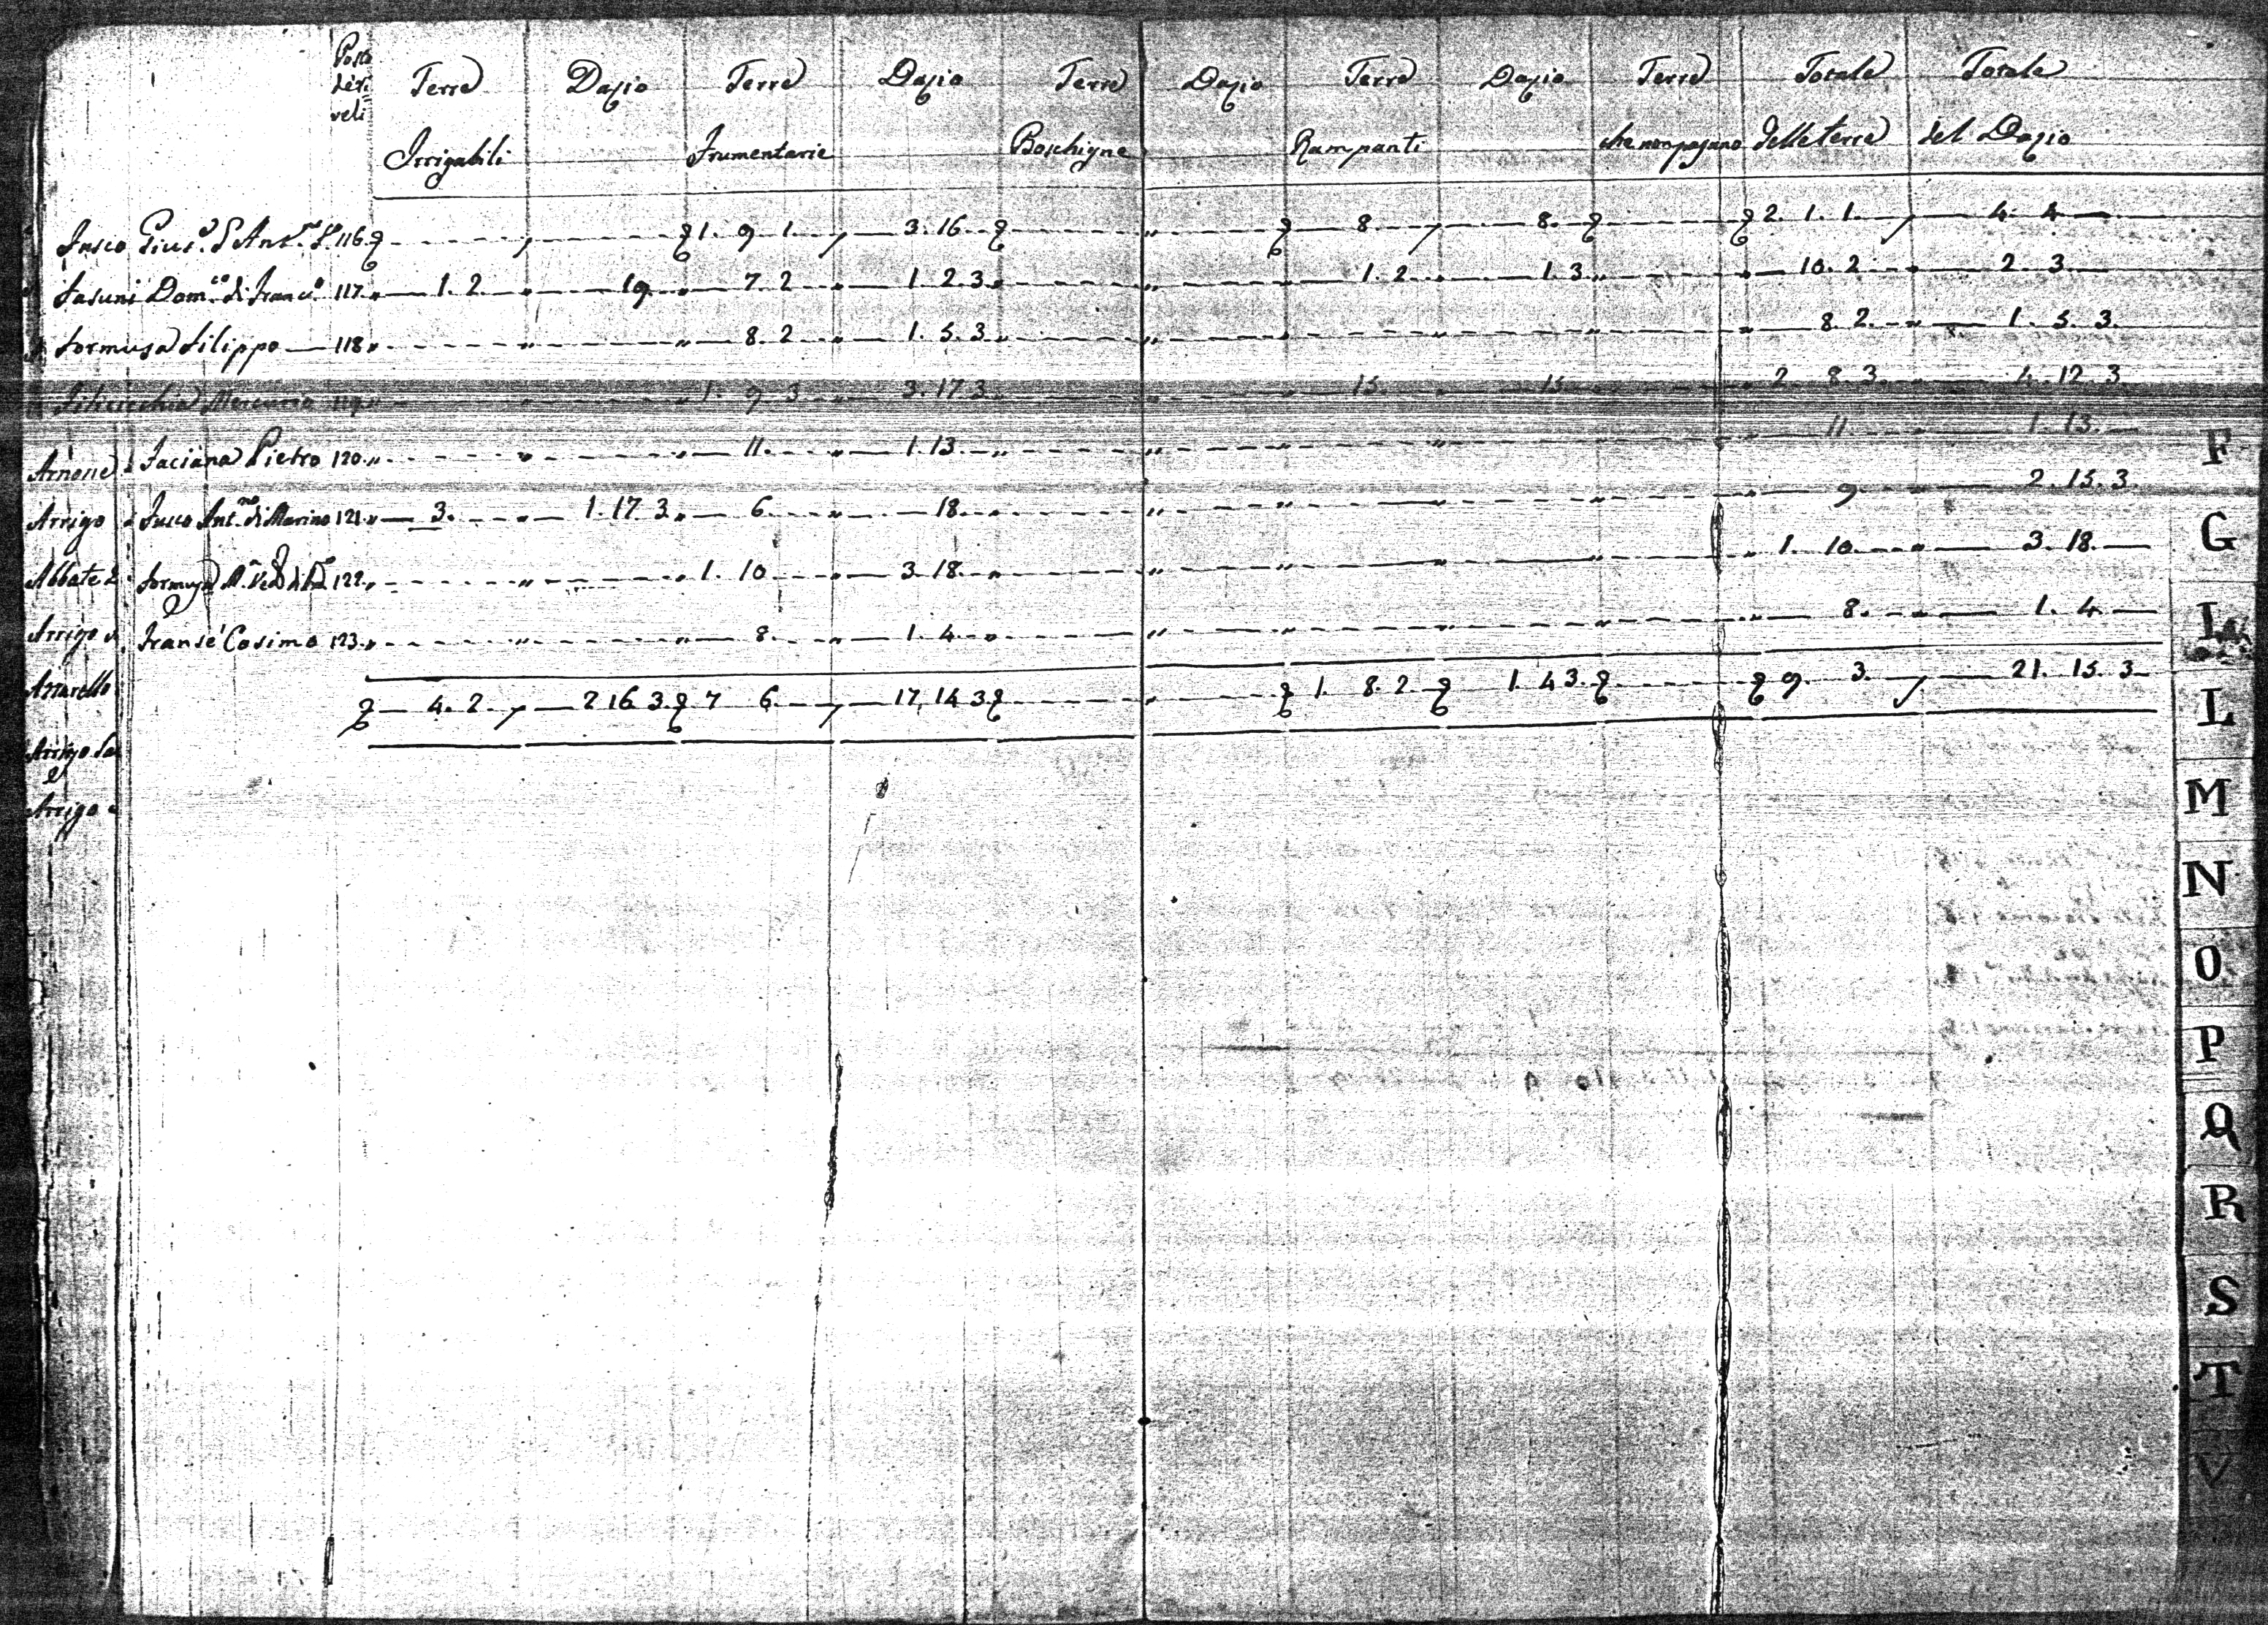 Posto
de ri=
veli
Terre Dazio Terre Dazio Terre Dazio Terre Dazio Terre Totale Totale
Irrigabili Frumentarie Boschigne Rampanti che non pagano delle terre del Dazio
Fusco 116 1. 9 1 3. 16 8 8. 2. 1. 1. 4. 4
Fasuni Dom.co di Franc.o 117 1. 2 19 7. 2 1. 2. 3 1. 2 1. 3 10. 2 2. 3
Formusa Filippo 118 8. 2 1. 5. 3 8. 2. 1. 5. 3.
Mercurio 119 1. 9 3 3. 17. 3 15 15 2 8. 3 4. 12. 3
Arnone Faciana Pietro 120 11. 1. 13. 11. 1. 13.
Arrigo Fusco Ant.no di Marino 121 3. 1. 17. 3 6 18. 9 2. 15. 3.
Abbate Formusa 122 1. 10 3. 18. 1. 10. 3. 18.
Arrigo Fransé Cosimo 123 8. 1. 4. 8. 1. 4.
4. 2 2 16. 3. 7 6. 17. 14 3 1. 8. 2 1. 4 3. 9. 3. 21. 15. 3
Arrigo
Arrigo
F
G
I
L
M
N
O
P
Q
R
S
T
V